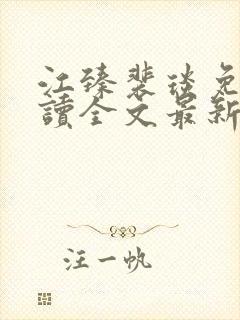 江臻裴琰免
讀全文最新
汪一帆